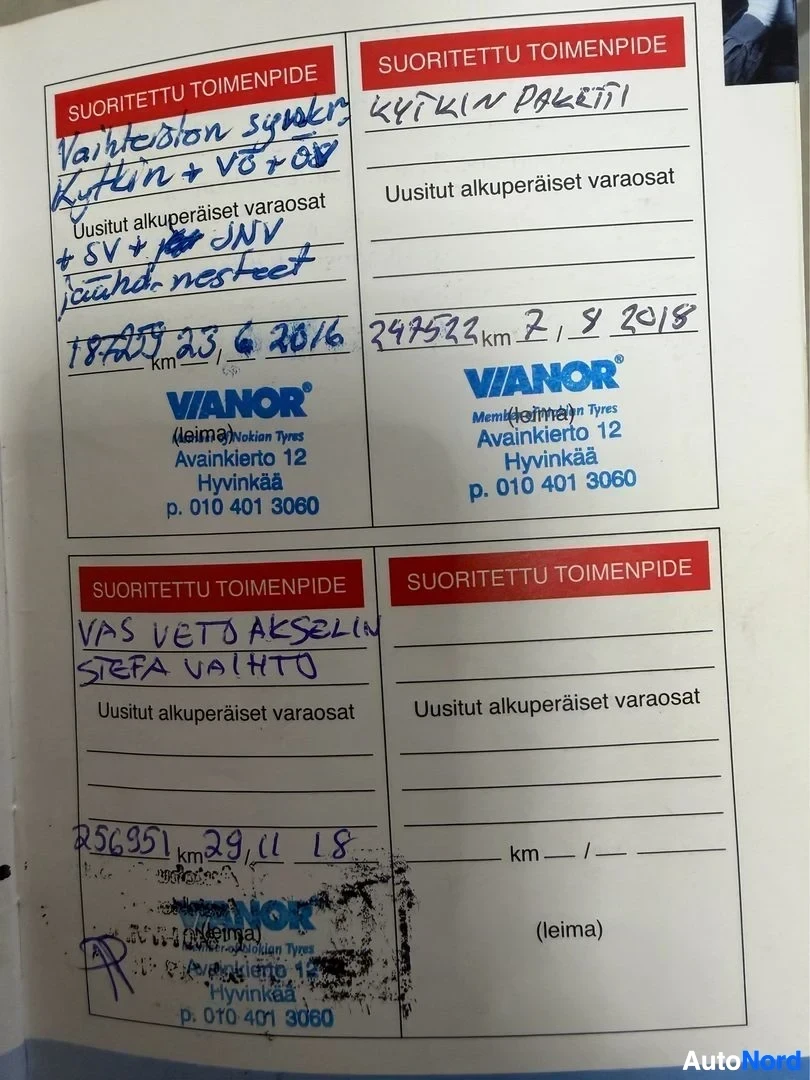 SUORITETTU TOIMENPIDE
Vaihteiston synkr.
Kytkin + VÖ + ÖV
Uusitut alkuperäiset varaosat
+ SV + JNV
jäähd.nesteet
187259 km 23 / 6 2016
VIANOR®
(leima)
Member of Nokian Tyres
Avainkierto 12
Hyvinkää
p. 010 401 3060
SUORITETTU TOIMENPIDE
KYTKIN PAKETTI
Uusitut alkuperäiset varaosat
247522 km 7 / 8 2018
VIANOR®
Member of Nokian Tyres
(leima)
Avainkierto 12
Hyvinkää
p. 010 401 3060
SUORITETTU TOIMENPIDE
VAS VETO AKSELIN
STEFA VAIHTO
Uusitut alkuperäiset varaosat
256951 km 29 / 11 18
VIANOR
(leima)
Member of Nokian Tyres
Avainkierto 12
Hyvinkää
p. 010 401 3060
SUORITETTU TOIMENPIDE
Uusitut alkuperäiset varaosat
km /
(leima)
AutoNord